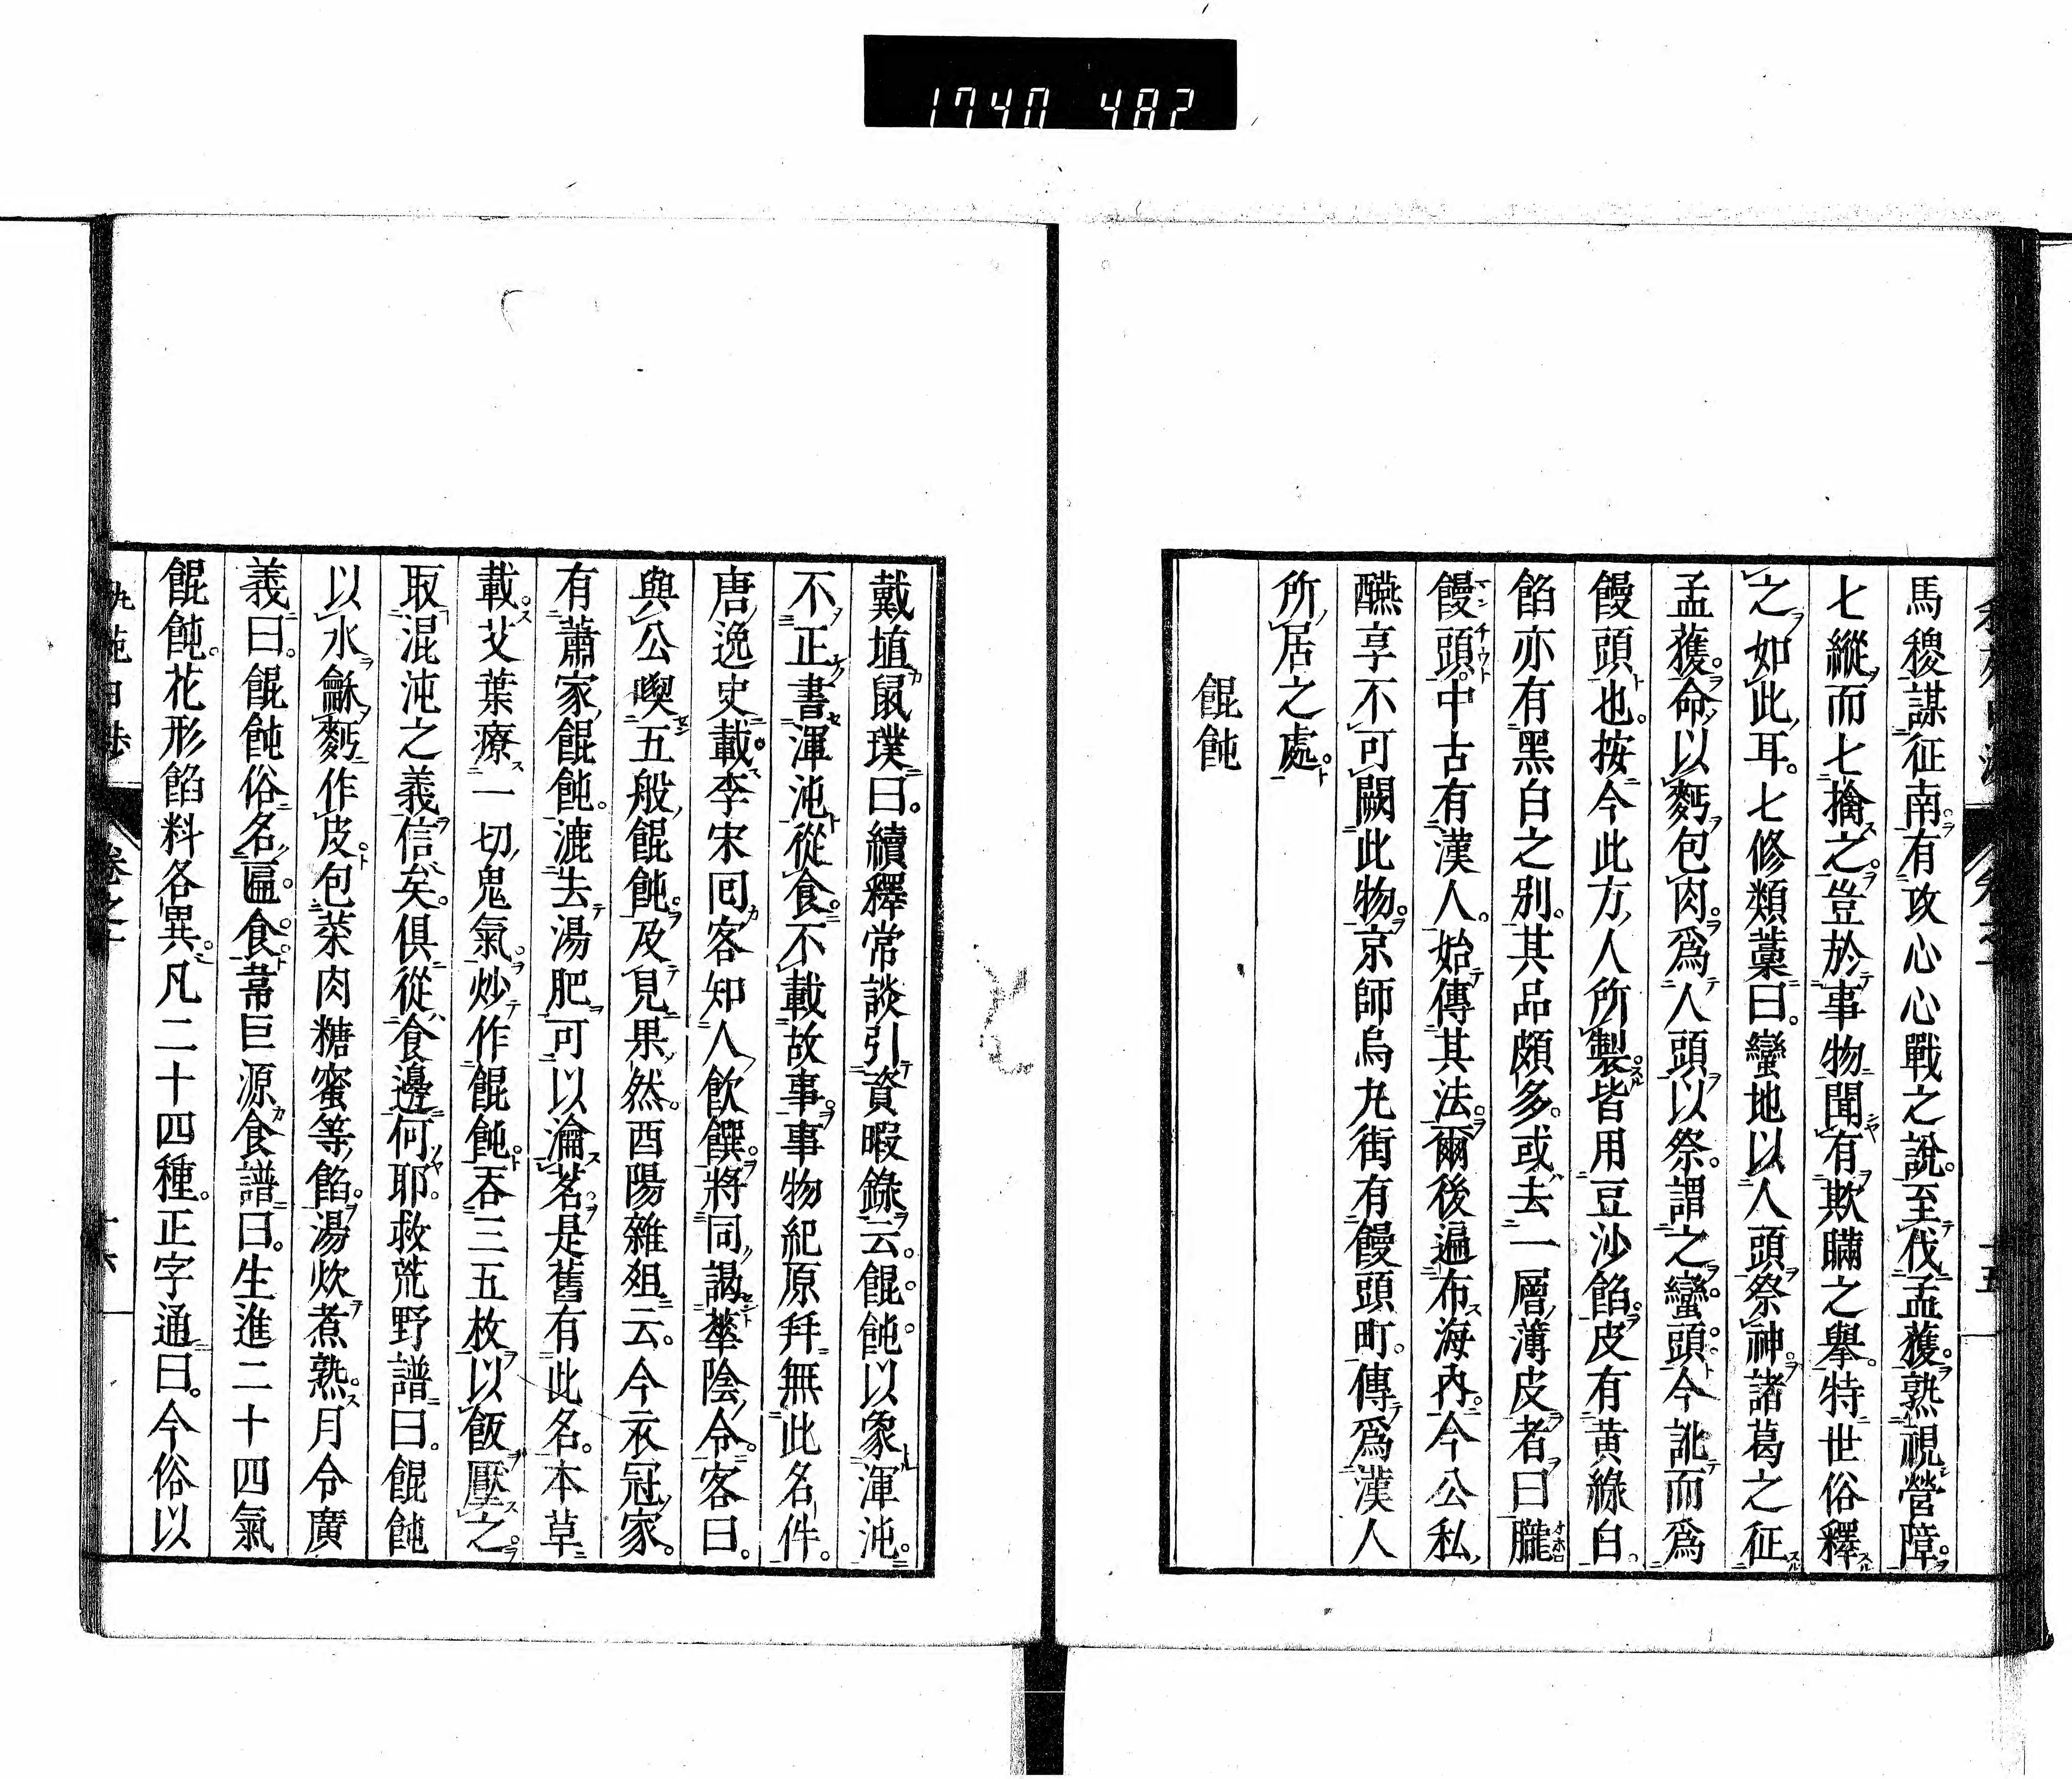 1740 482
馬稷謀征南。有攻心心戰之說。至伐孟獲。熟視營障。
七縱而七擒之。豈於事物聞有欺瞞之擧。特世俗釋
之如此耳。七修類藁曰。蠻地以人頭祭神。諸葛之征
孟獲。命以麪包肉。爲人頭以祭。謂之蠻頭。今訛而爲
饅頭也。按今此方人所製。皆用豆沙餡。皮有黄綠白。
餡亦有黑白之别。其品頗多。或去一層薄皮者曰朧
饅頭。中古有漢人。始傳其法。爾後遍布海內。今公私
醼享不可闕此物。京師烏丸街有饅頭町。傳爲漢人
所居之處。
餛飩
戴埴鼠璞曰。續釋常談引資暇錄云。餛飩以象渾沌。
不正書渾沌從食。不載故事。事物紀原幷無此名件。
唐逸史載李宋囘客知人飲饌。將同謁華陰令。客曰。
與公喫五般餛飩。及見果然。酉陽雜俎云。今衣冠家。
有蕭家餛飩。漉去湯肥。可以瀹茗。是舊有此名。本草
載。艾葉療一切鬼氣。炒作餛飩。吞三五枚。以飯壓之。
取混沌之義信矣。俱從食邊何耶。救荒野譜曰。餛飩
以水龢麪作皮。包菜肉糖蜜等餡。湯炊煮熟。月令廣
義曰。餛飩俗名匾食。韋巨源食譜曰。生進二十四氣
餛飩。花形餡料各異。凡二十四種。正字通曰。今俗以
卷之